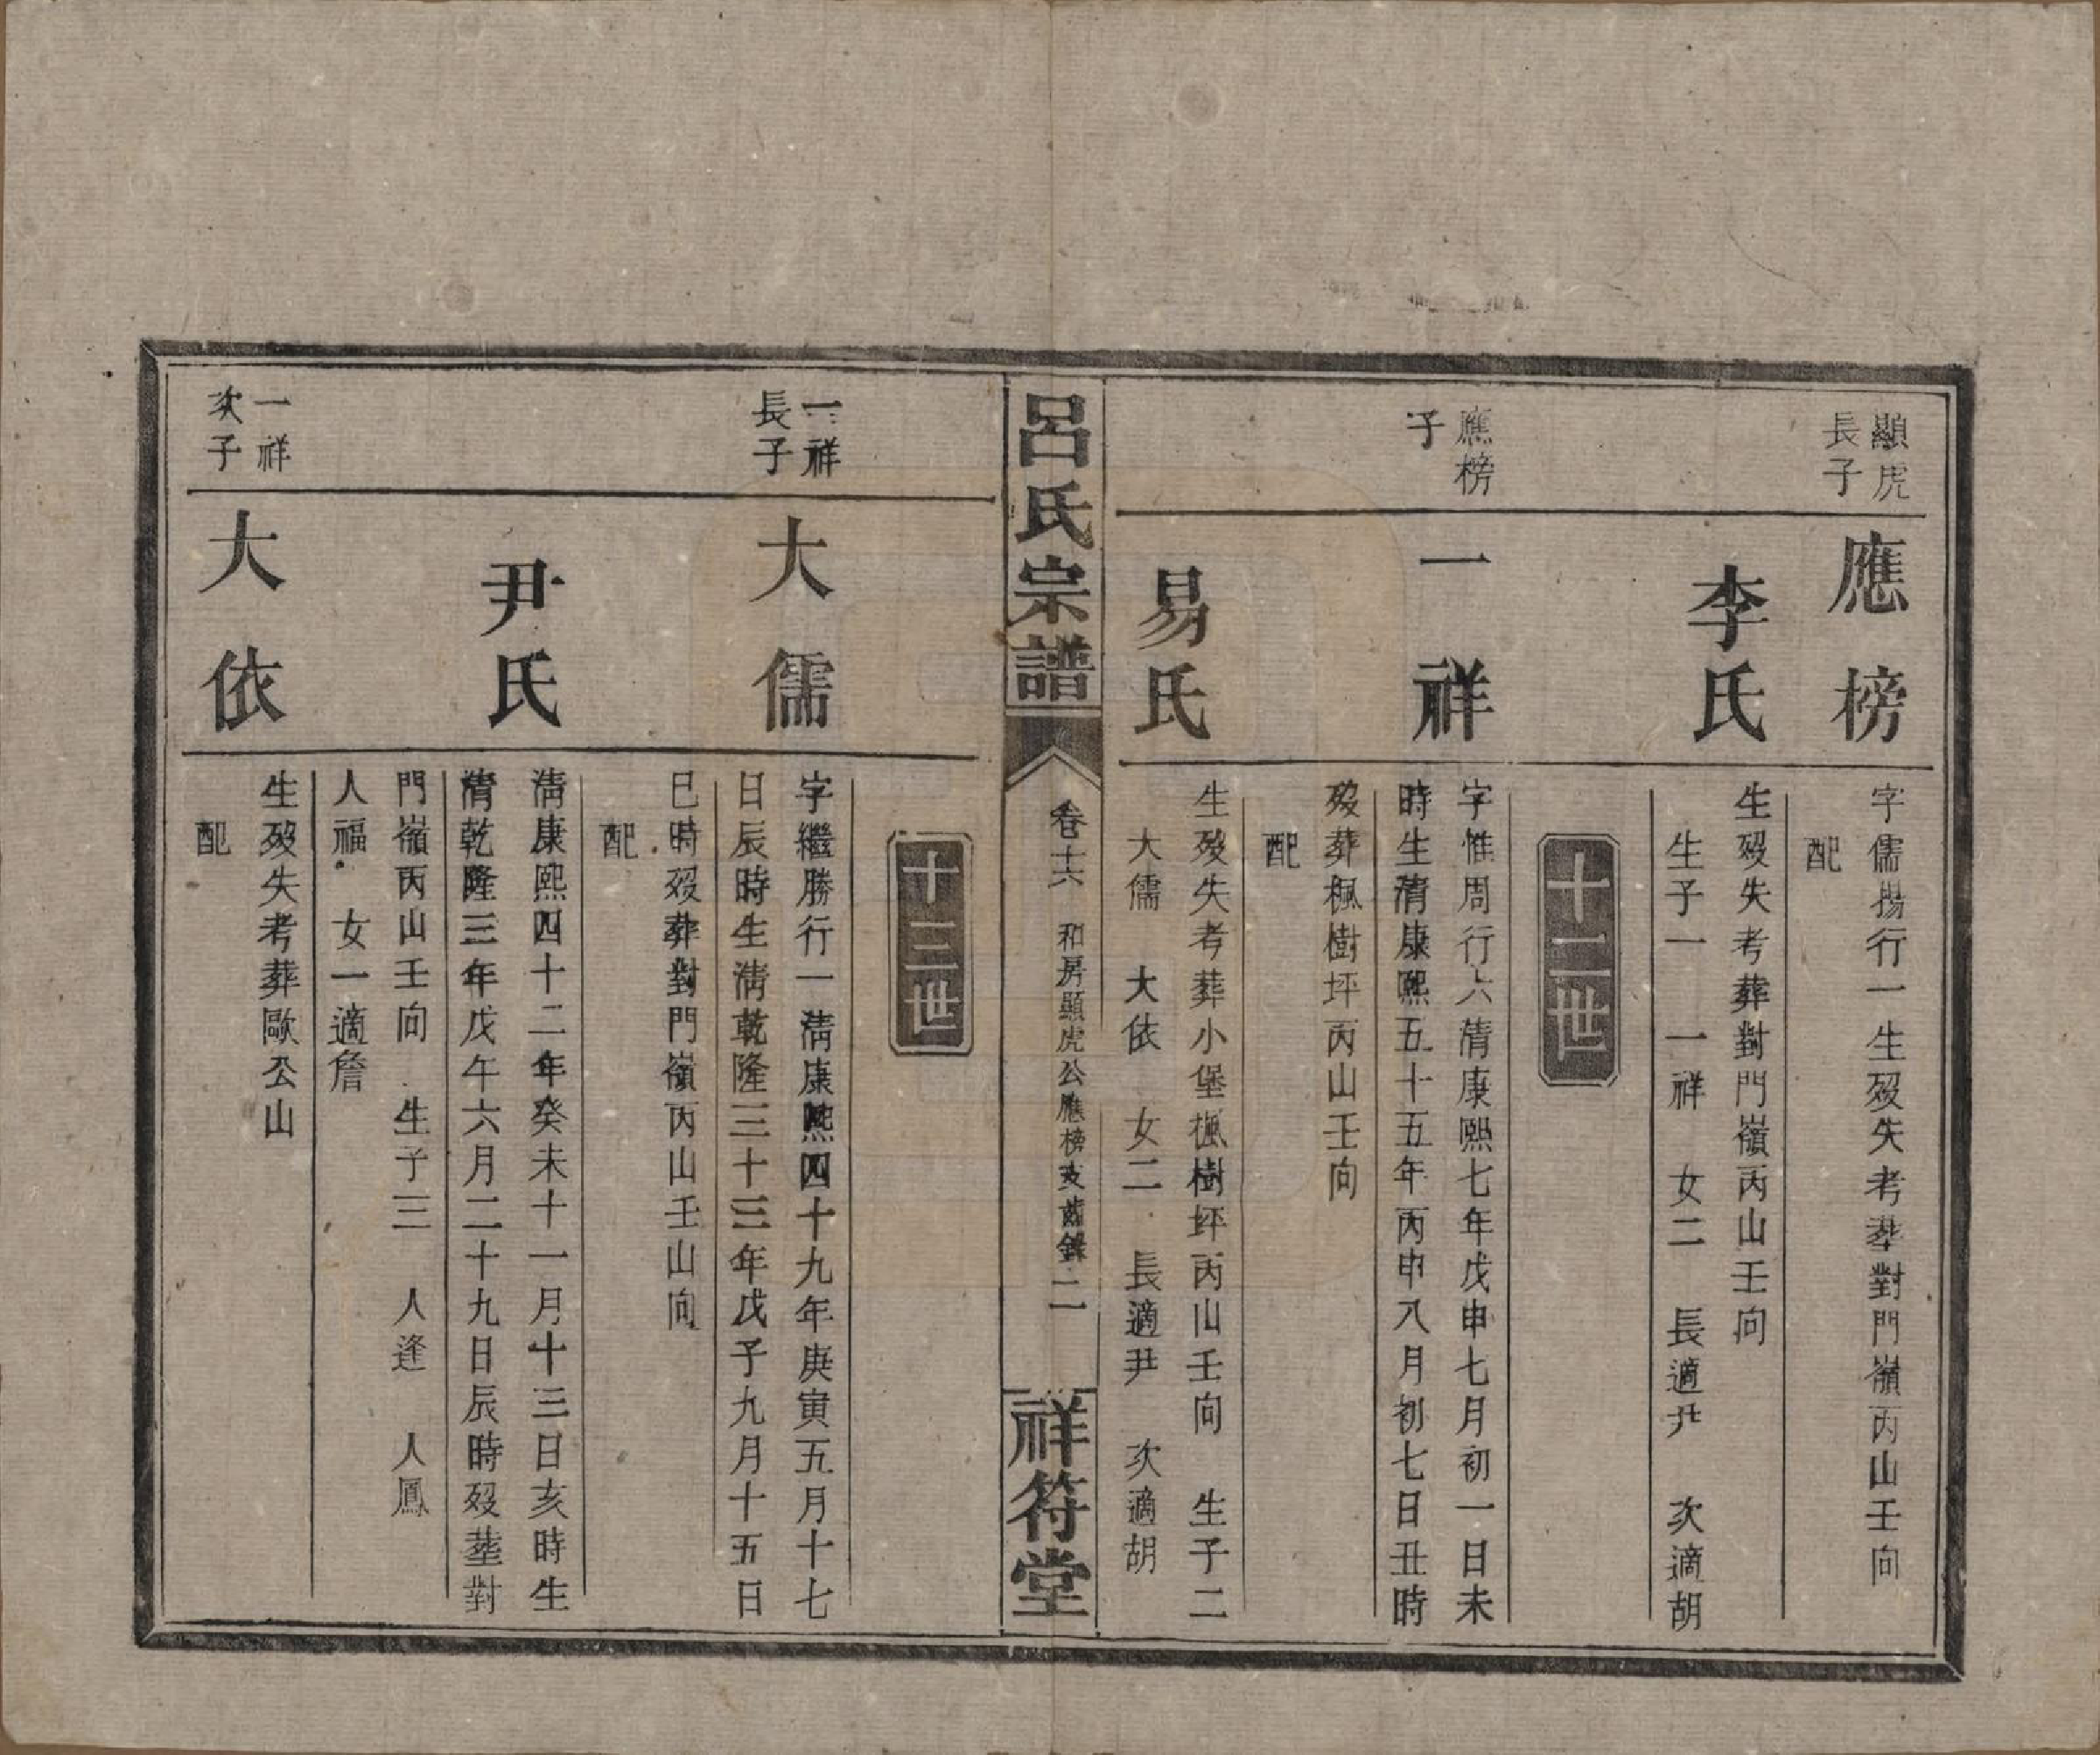 顯虎
長子
應榜
字儒揚行一生歿失考葬對門嶺丙山壬向
配
李氏
生歿失考葬對門嶺丙山壬向
生子一　一祥　女二　長適尹　次適胡
十二世
應榜
子
一祥
字惟周行六清康熙七年戊申七月初一日未
時生清康熙五十五年丙申八月初七日丑時
歿葬楓樹坪丙山壬向
配
易氏
生歿失考葬小堡楓樹坪丙山壬向　生子二
大儒　大依　女二　長適尹　次適胡
呂氏宗譜
卷十六　和房顯虎公應榜支齒錄　二
祥符堂
十三世
一祥
長子
大儒
字繼勝行一清康熙四十九年庚寅五月十七
日辰時生清乾隆三十三年戊子九月十五日
巳時歿葬對門嶺丙山壬山向
配
尹氏
清康熙四十二年癸未十一月十三日亥時生
清乾隆三年戊午六月二十九日辰時歿塟對
門嶺丙山壬向　生子三　人逢　人鳳
人福　女一適詹
一祥
次子
大依
生歿失考葬歐公山
配